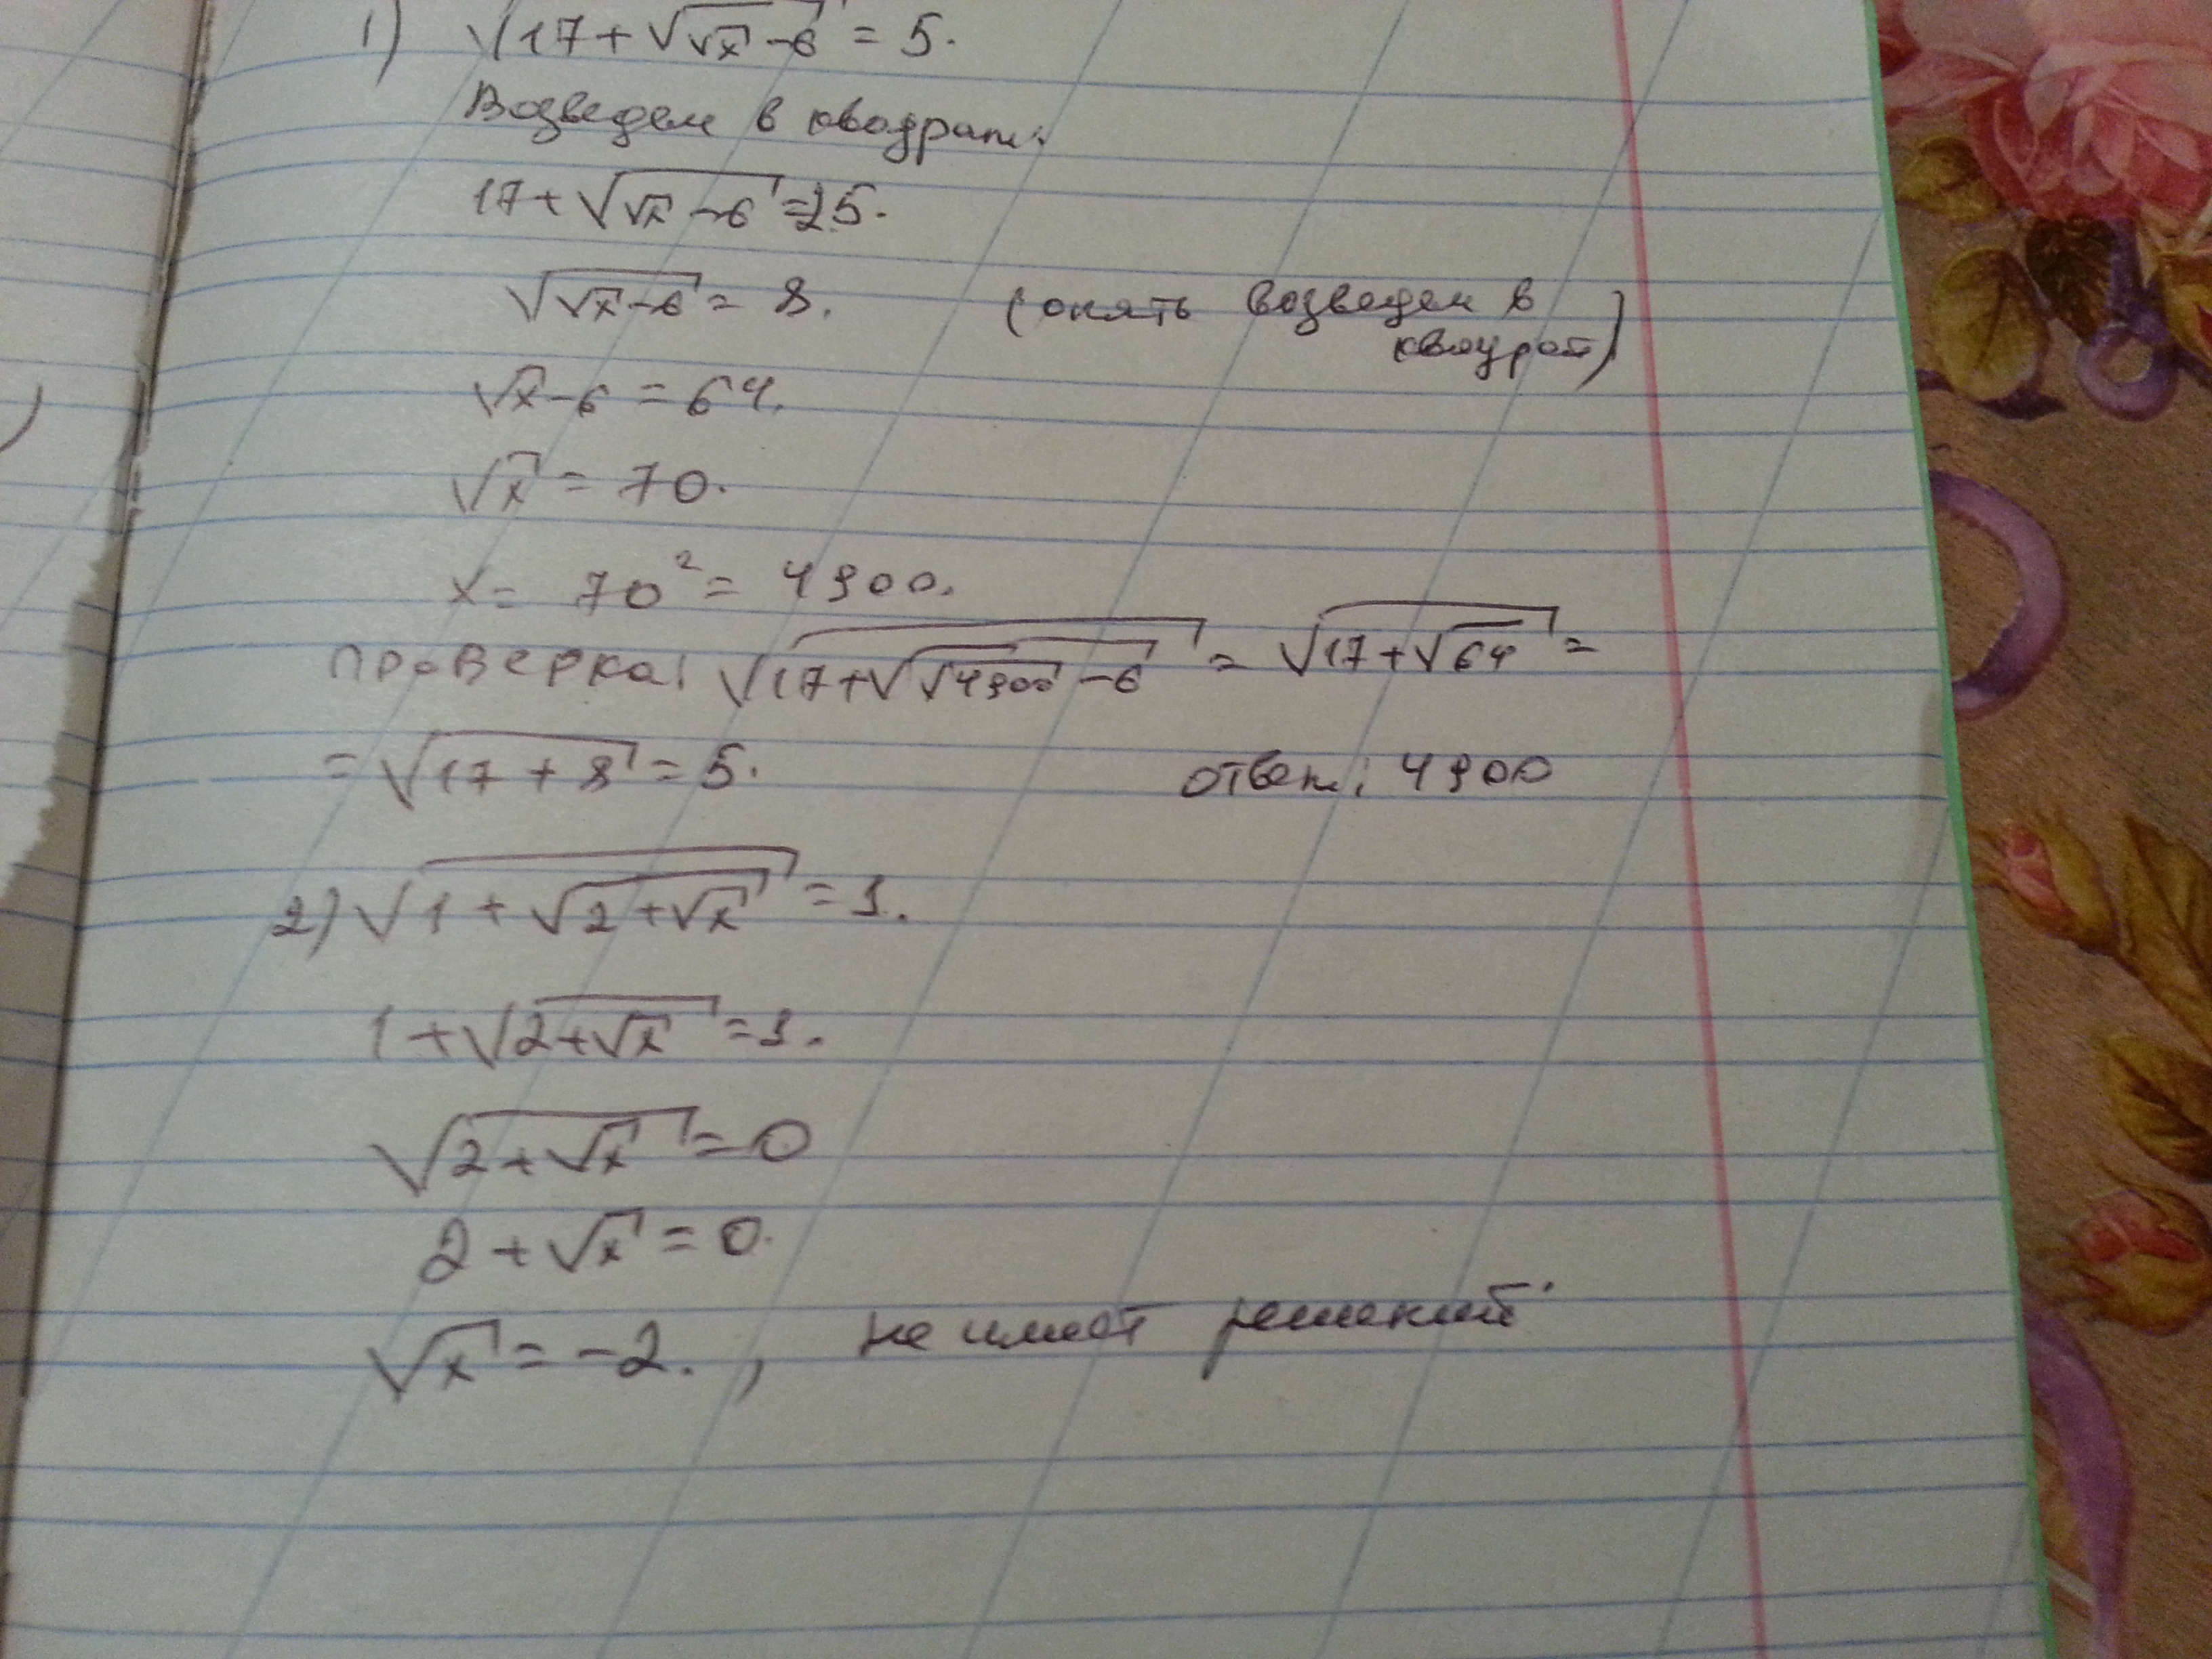 1) √(17+√(√x-6)) = 5.
Возведем в квадрат:
17+√(√x-6)=25.
√(√x-6) = 8. (опять возведем в
квадрат)
√x-6 = 64.
√x = 70.
x = 70² = 4900.
проверка: √(17+√(√4900-6)) = √(17+√64) =
= √(17+8) = 5. ответ: 4900
2) √(1+√(2+√x)) = 1.
1+√(2+√x) = 1.
√(2+√x) = 0
2+√x = 0.
√x = -2. , не имеет решений.